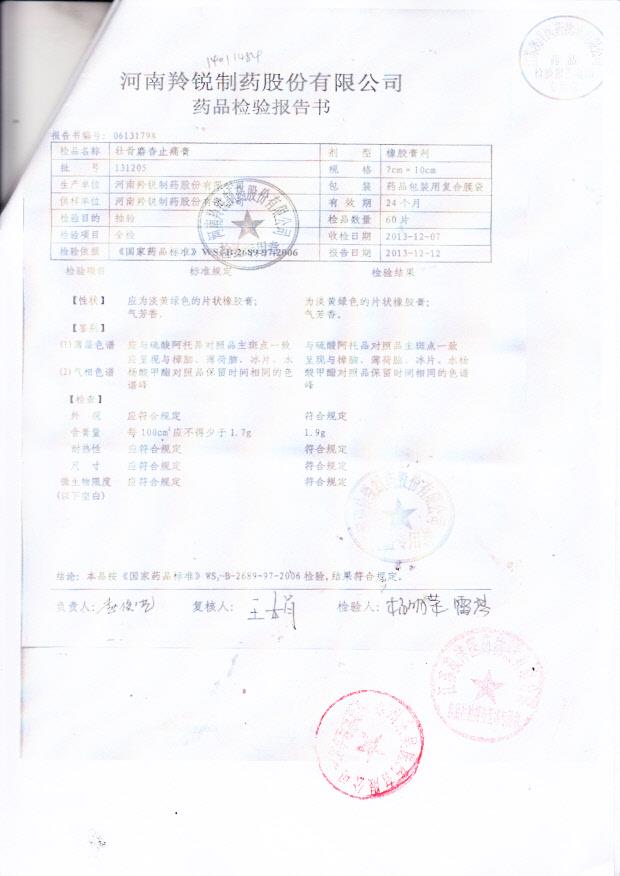 14011484
河南羚锐制药股份有限公司
药品检验报告书
报告书编号: 06131798
检品名称 壮骨麝香止痛膏 剂 型 橡胶膏剂
批 号 131205 规 格 7cm×10cm
生产单位 河南羚锐制药股份有限公司 包 装 药品包装用复合膜袋
供样单位 河南羚锐制药股份有限 有 效 期 24个月
检验目的 抽验 检品数量 60片
检验项目 全检 收检日期 2013-12-07
检验依据 《国家药品标准》WS₃-B-2689-97-2006 报告日期 2013-12-12
检验项目 标准规定 检验结果
【性状】 应为淡黄绿色的片状橡胶膏; 为淡黄绿色的片状橡胶膏;
气芳香。 气芳香。
【鉴别】
(1)薄层色谱 应与硫酸阿托品对照品主斑点一致 与硫酸阿托品对照品主斑点一致
应呈现与樟脑、薄荷脑、冰片、水 呈现与樟脑、薄荷脑、冰片、水杨
(2)气相色谱 杨酸甲酯对照品保留时间相同的色 酸甲酯对照品保留时间相同的色谱
谱峰 峰
【检查】
外 观 应符合规定 符合规定
含膏量 每100cm²应不得少于1.7g 1.9g
耐热性 应符合规定 符合规定
尺 寸 应符合规定 符合规定
微生物限度 应符合规定 符合规定
(以下空白)
结论: 本品按《国家药品标准》WS₃-B-2689-97-2006检验,结果符合规定。
负责人: 复核人: 王娟 检验人: 杨明荣